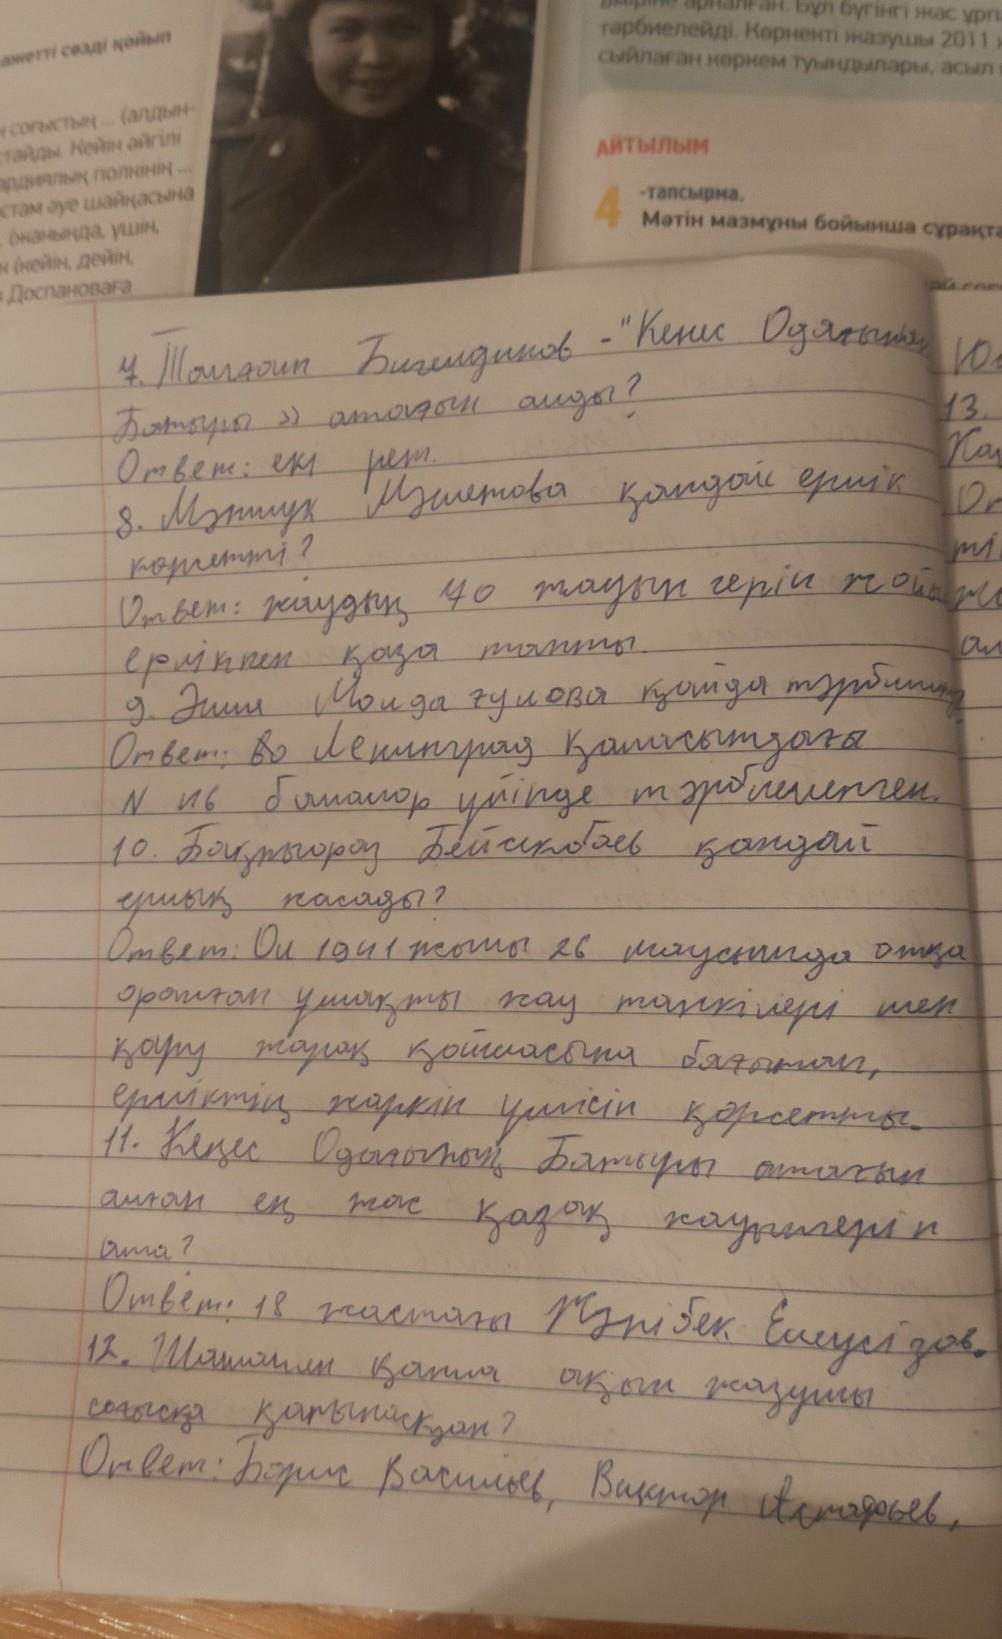 ажетті сөзді қойып
соғыстың ... (алдын-
стайды. Кейін әйгілі
ардиялық полкінің ...
стам әуе шайқасына
(жанында, үшін,
н (кейін, дейін,
Доспановаға
өміріне арналған. Бұл бүгінгі жас ұрп
тәрбиелейді. Көрнекті жазушы 2011 ж
сыйлаған көркем туындылары, асыл
АЙТЫЛЫМ
4 -тапсырма.
Мәтін мазмұны бойынша сұрақта
7. Талғат Бигелдинов - "Кеңес Одағының
Батыры » атағын алды?
Ответ: екі рет.
8. Мәншүк Мәметова қандай ерлік
көрсетті?
Ответ: жаудың 70 жауынгерін жойып
ерлікпен қаза тапты.
9. Әлия Молдағулова қайда тәрбиленд
Ответ: Во Ленинград қаласындағы
N 116 балалар үйінде тәрбиеленген.
10. Бақтыораз Бейсекбаев қандай
ерлық жасады?
Ответ: Ол 1941 жылы 26 маусымда отқа
оранған ұшақты жау танкілері мен
қару жарақ қоймасына бағыттап,
ерліктің жарқін үлгісін қөрсетты.
11. Кеңес Одағының Батыры атағын
алған ең жас қазақ жауынгерін
ата?
Ответ: 18 жастағы Жәнібек Елеусізов.
12. Шамамен қанша ақын жазушы
соғысқа қатынасқан?
Ответ: Борис Васильев, Виктор Астафьев,
Юл
13.
Қа
От
ті
ал